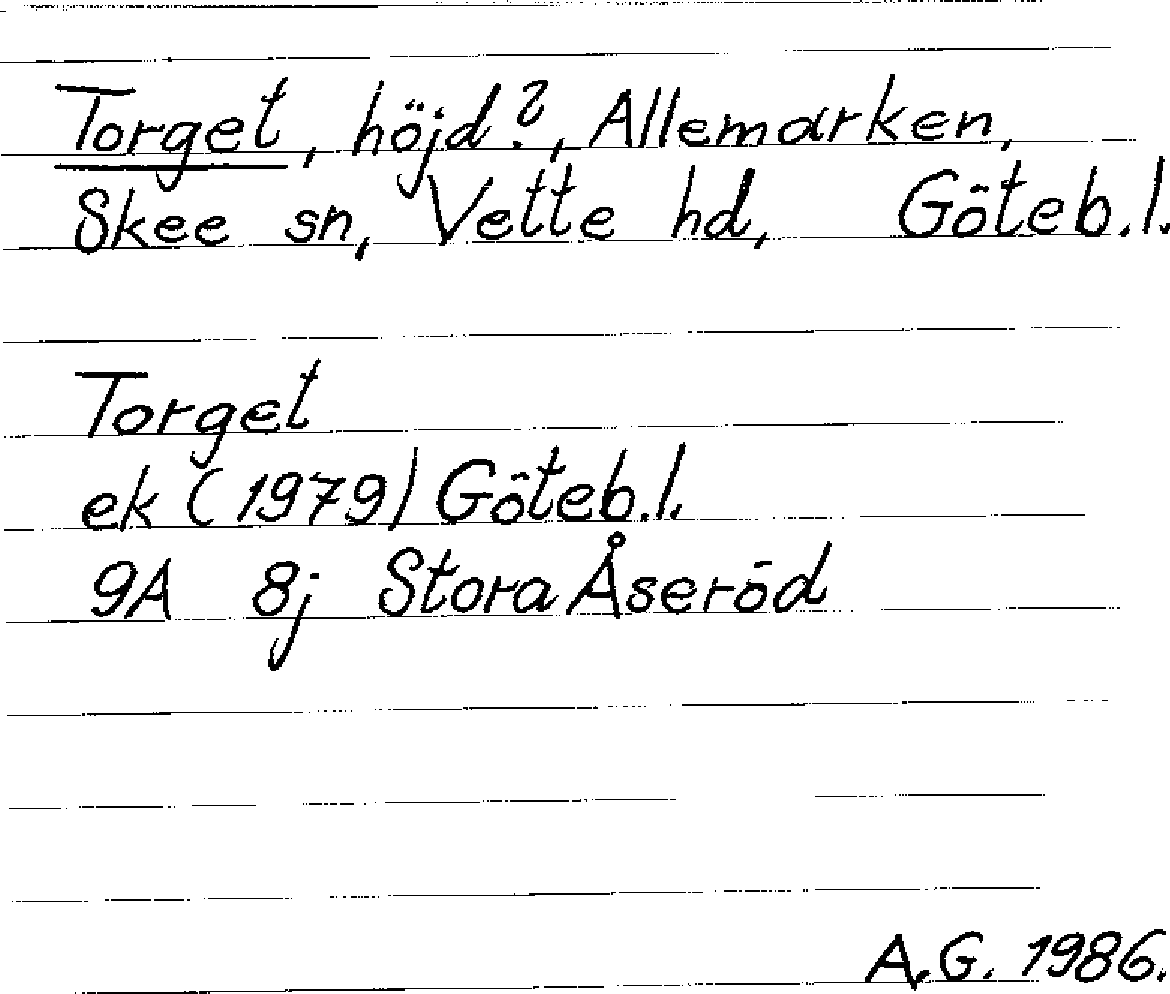 Torget, höjd?, Allemarken,
Skee sn, Vette hd, Göteb.l.
Torget
ek (1979) Göteb.l.
9A 8j Stora Åseröd
A.G. 1986.